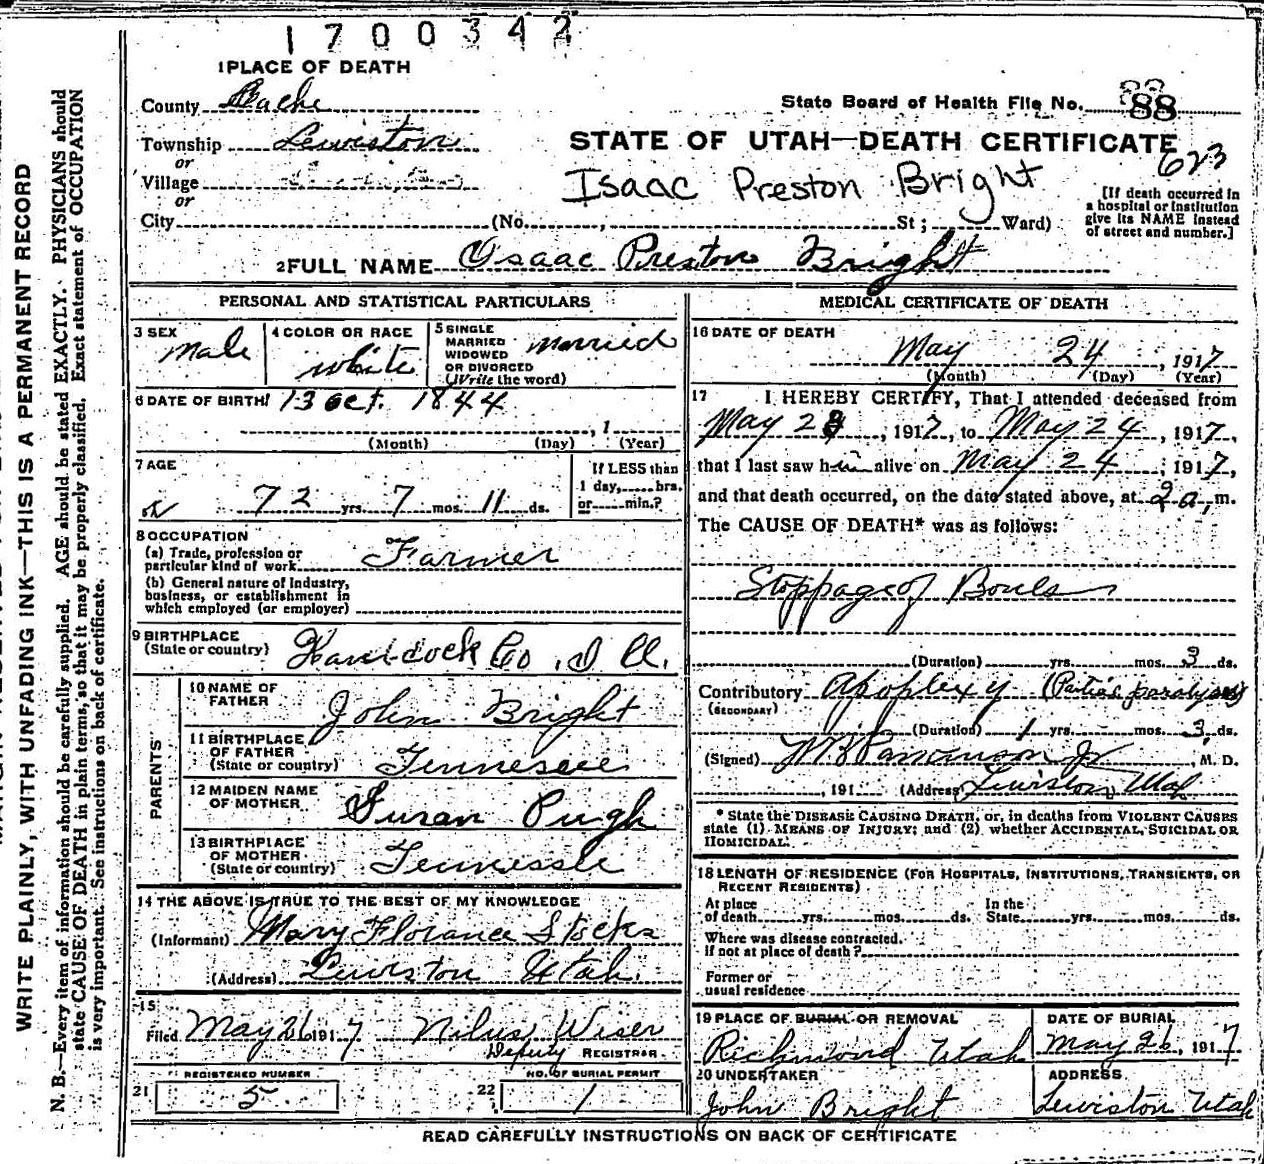 1700342
1 PLACE OF DEATH
County Cache
State Board of Health File No. 88
Township Lewiston
STATE OF UTAH—DEATH CERTIFICATE
or
623
Village
Isaac Preston Bright
or
[If death occurred in
a hospital or institution
give its NAME instead
of street and number.]
City (No. , St; Ward)
2 FULL NAME Isaac Preston Bright
PERSONAL AND STATISTICAL PARTICULARS
3 SEX
Male
4 COLOR OR RACE
white
5 SINGLE
MARRIED
WIDOWED
OR DIVORCED
(Write the word)
Married
6 DATE OF BIRTH 13 Oct. 1844
, 1
(Month) (Day) (Year)
7 AGE
72 yrs. 7 mos. 11 ds.
If LESS than
1 day, hrs.
or min.?
8 OCCUPATION
(a) Trade, profession or
particular kind of work Farmer
(b) General nature of Industry,
business, or establishment in
which employed (or employer)
9 BIRTHPLACE
(State or country) Handcock Co. Ill.
PARENTS
10 NAME OF
FATHER John Bright
11 BIRTHPLACE
OF FATHER
(State or country) Tennessee
12 MAIDEN NAME
OF MOTHER Susan Pugh
13 BIRTHPLACE
OF MOTHER
(State or country) Tennessee
14 THE ABOVE IS TRUE TO THE BEST OF MY KNOWLEDGE
(Informant) Mary Florance Stocks
(Address) Lewiston Utah.
15
Filed May 26 1917 Nilus Wiser
Deputy REGISTRAR
REGISTERED NUMBER
21 5
NO. OF BURIAL PERMIT
22 1
MEDICAL CERTIFICATE OF DEATH
16 DATE OF DEATH
May 24, 1917
(Month) (Day) (Year)
17 I HEREBY CERTIFY, That I attended deceased from
May 23, 1917, to May 24, 1917,
that I last saw him alive on May 24, 1917,
and that death occurred, on the date stated above, at 2 a, m.
The CAUSE OF DEATH* was as follows:
Stoppage of Bouls
(Duration) yrs. mos. 3 ds.
Contributory Apoplexy (Partial paralysis)
(SECONDARY)
(Duration) 1 yrs. - mos. 3 ds.
(Signed) Jr, M. D.
, 191 (Address) Lewiston, Utah
* State the DISEASE CAUSING DEATH, or, in deaths from VIOLENT CAUSES
state (1) MEANS OF INJURY; and (2) whether ACCIDENTAL, SUICIDAL OR
HOMICIDAL.
18 LENGTH OF RESIDENCE (FOR HOSPITALS, INSTITUTIONS, TRANSIENTS, OR
RECENT RESIDENTS)
At place
of death yrs. mos. ds. In the
State yrs. mos. ds.
Where was disease contracted.
if not at place of death?
Former or
usual residence
19 PLACE OF BURIAL OR REMOVAL
Richmond Utah
DATE OF BURIAL
May 26, 1917
20 UNDERTAKER
John Bright
ADDRESS
Lewiston Utah
READ CAREFULLY INSTRUCTIONS ON BACK OF CERTIFICATE
WRITE PLAINLY, WITH UNFADING INK—THIS IS A PERMANENT RECORD
N. B.—Every item of information should be carefully supplied. AGE should be stated EXACTLY. PHYSICIANS should
state CAUSE OF DEATH in plain terms, so that it may be properly classified. Exact statement of OCCUPATION
is very important. See instructions on back of certificate.